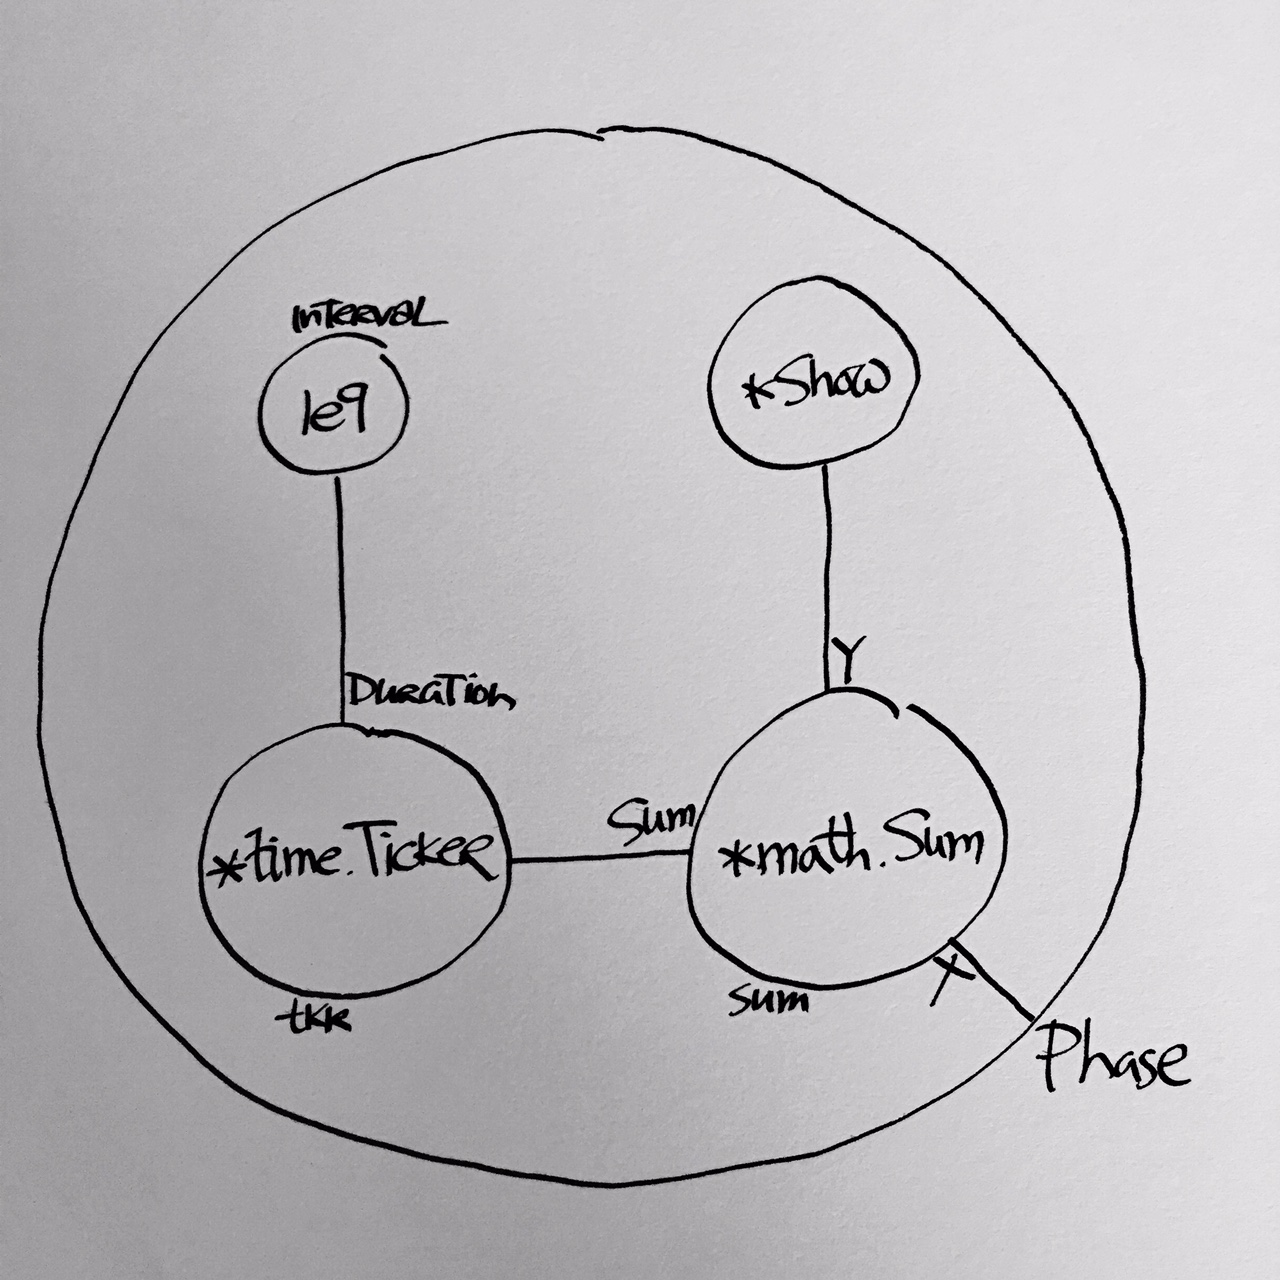 Interval
1e9
*Show
Duration
Y
*time.Ticker
Sum
*math.Sum
tkr
sum
X
Phase